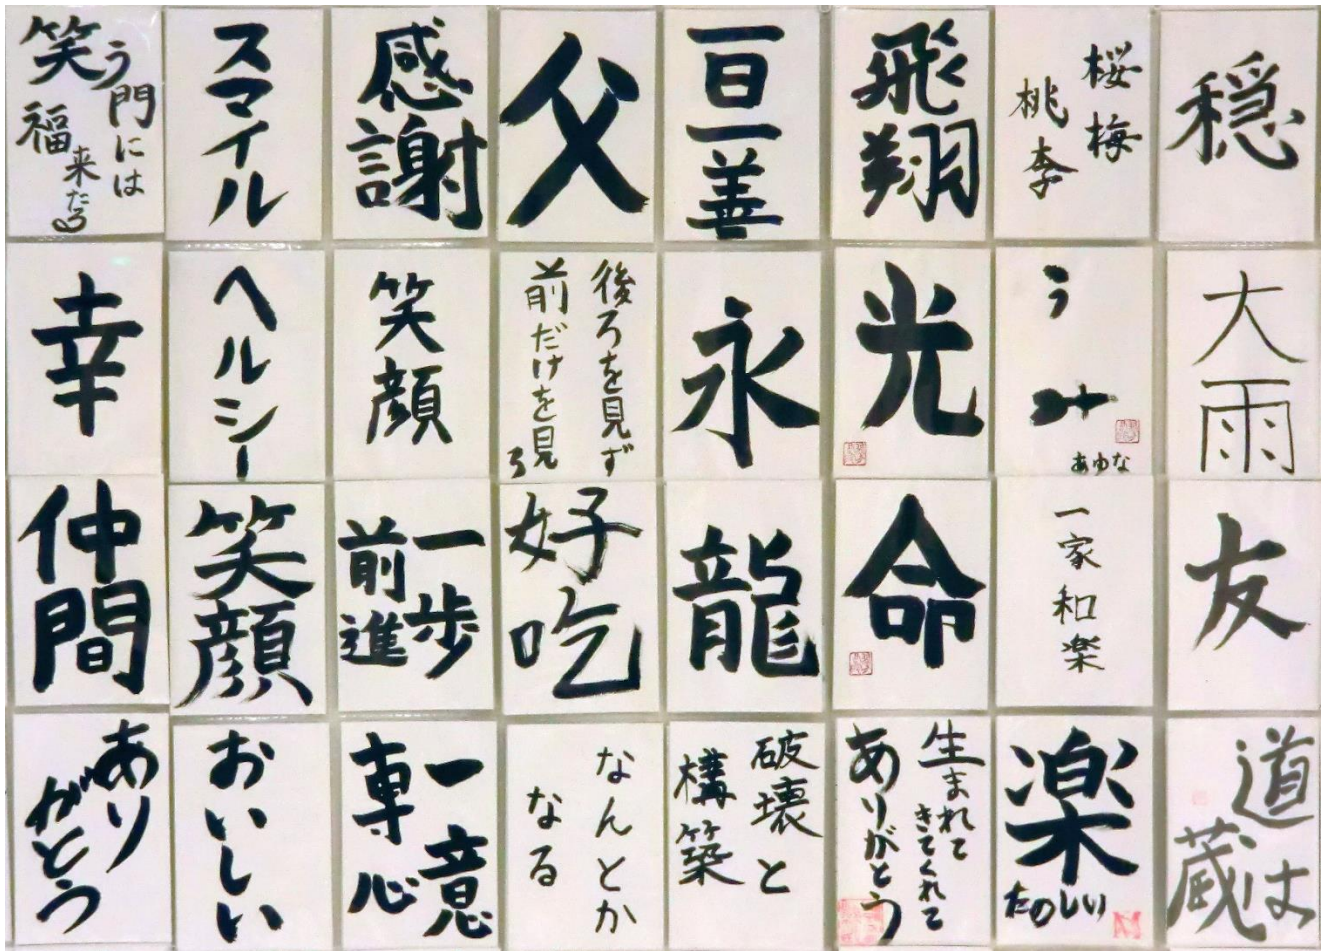 笑う門には
福来たる
スマイル
感謝
父
一日一善
飛翔
桜梅
桃李
穏
幸
ヘルシー
笑顔
後ろを見ず
前だけを見ろ
永
光
う
あゆな
大雨
仲間
笑顔
一歩
前進
好吃
龍
命
一家和楽
友
あり
がとう
おいしい
一意
専心
なんとか
なる
破壊と
構築
生まれて
きてくれて
ありがとう
楽
たのしい
道は
蔵